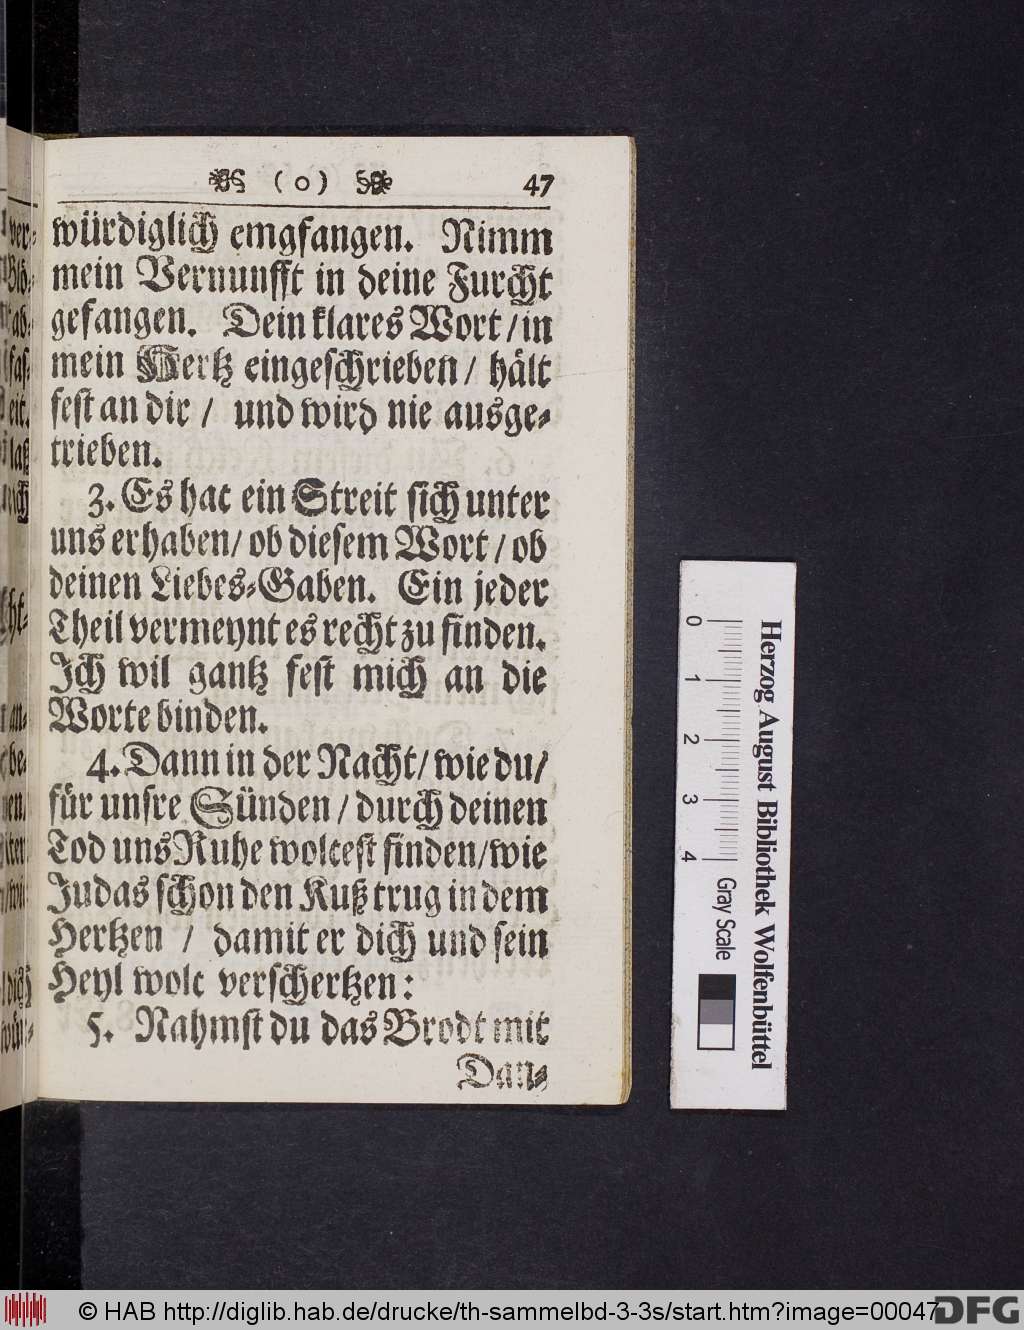 ( o ) 47
würdiglich emgfangen. Nimm
mein Vernunfft in deine Furcht
gefangen. Dein klares Wort / in
mein Hertz eingeschrieben / hält
fest an dir / und wird nie ausge-
trieben.
3. Es hat ein Streit sich unter
uns erhaben / ob diesem Wort / ob
deinen Liebes-Gaben. Ein jeder
Theil vermeynt es recht zu finden.
Ich wil gantz fest mich an die
Worte binden.
4. Dann in der Nacht / wie du /
für unsre Sünden / durch deinen
Tod uns Ruhe woltest finden / wie
Judas schon den Kuß trug in dem
Hertzen / damit er dich und sein
Heyl wolt verschertzen:
5. Nahmst du das Brodt mit
Dan-
0 1 2 3 4 Gray Scale
Herzog August Bibliothek Wolfenbüttel
© HAB http://diglib.hab.de/drucke/th-sammelbd-3-3s/start.htm?image=00047
DFG